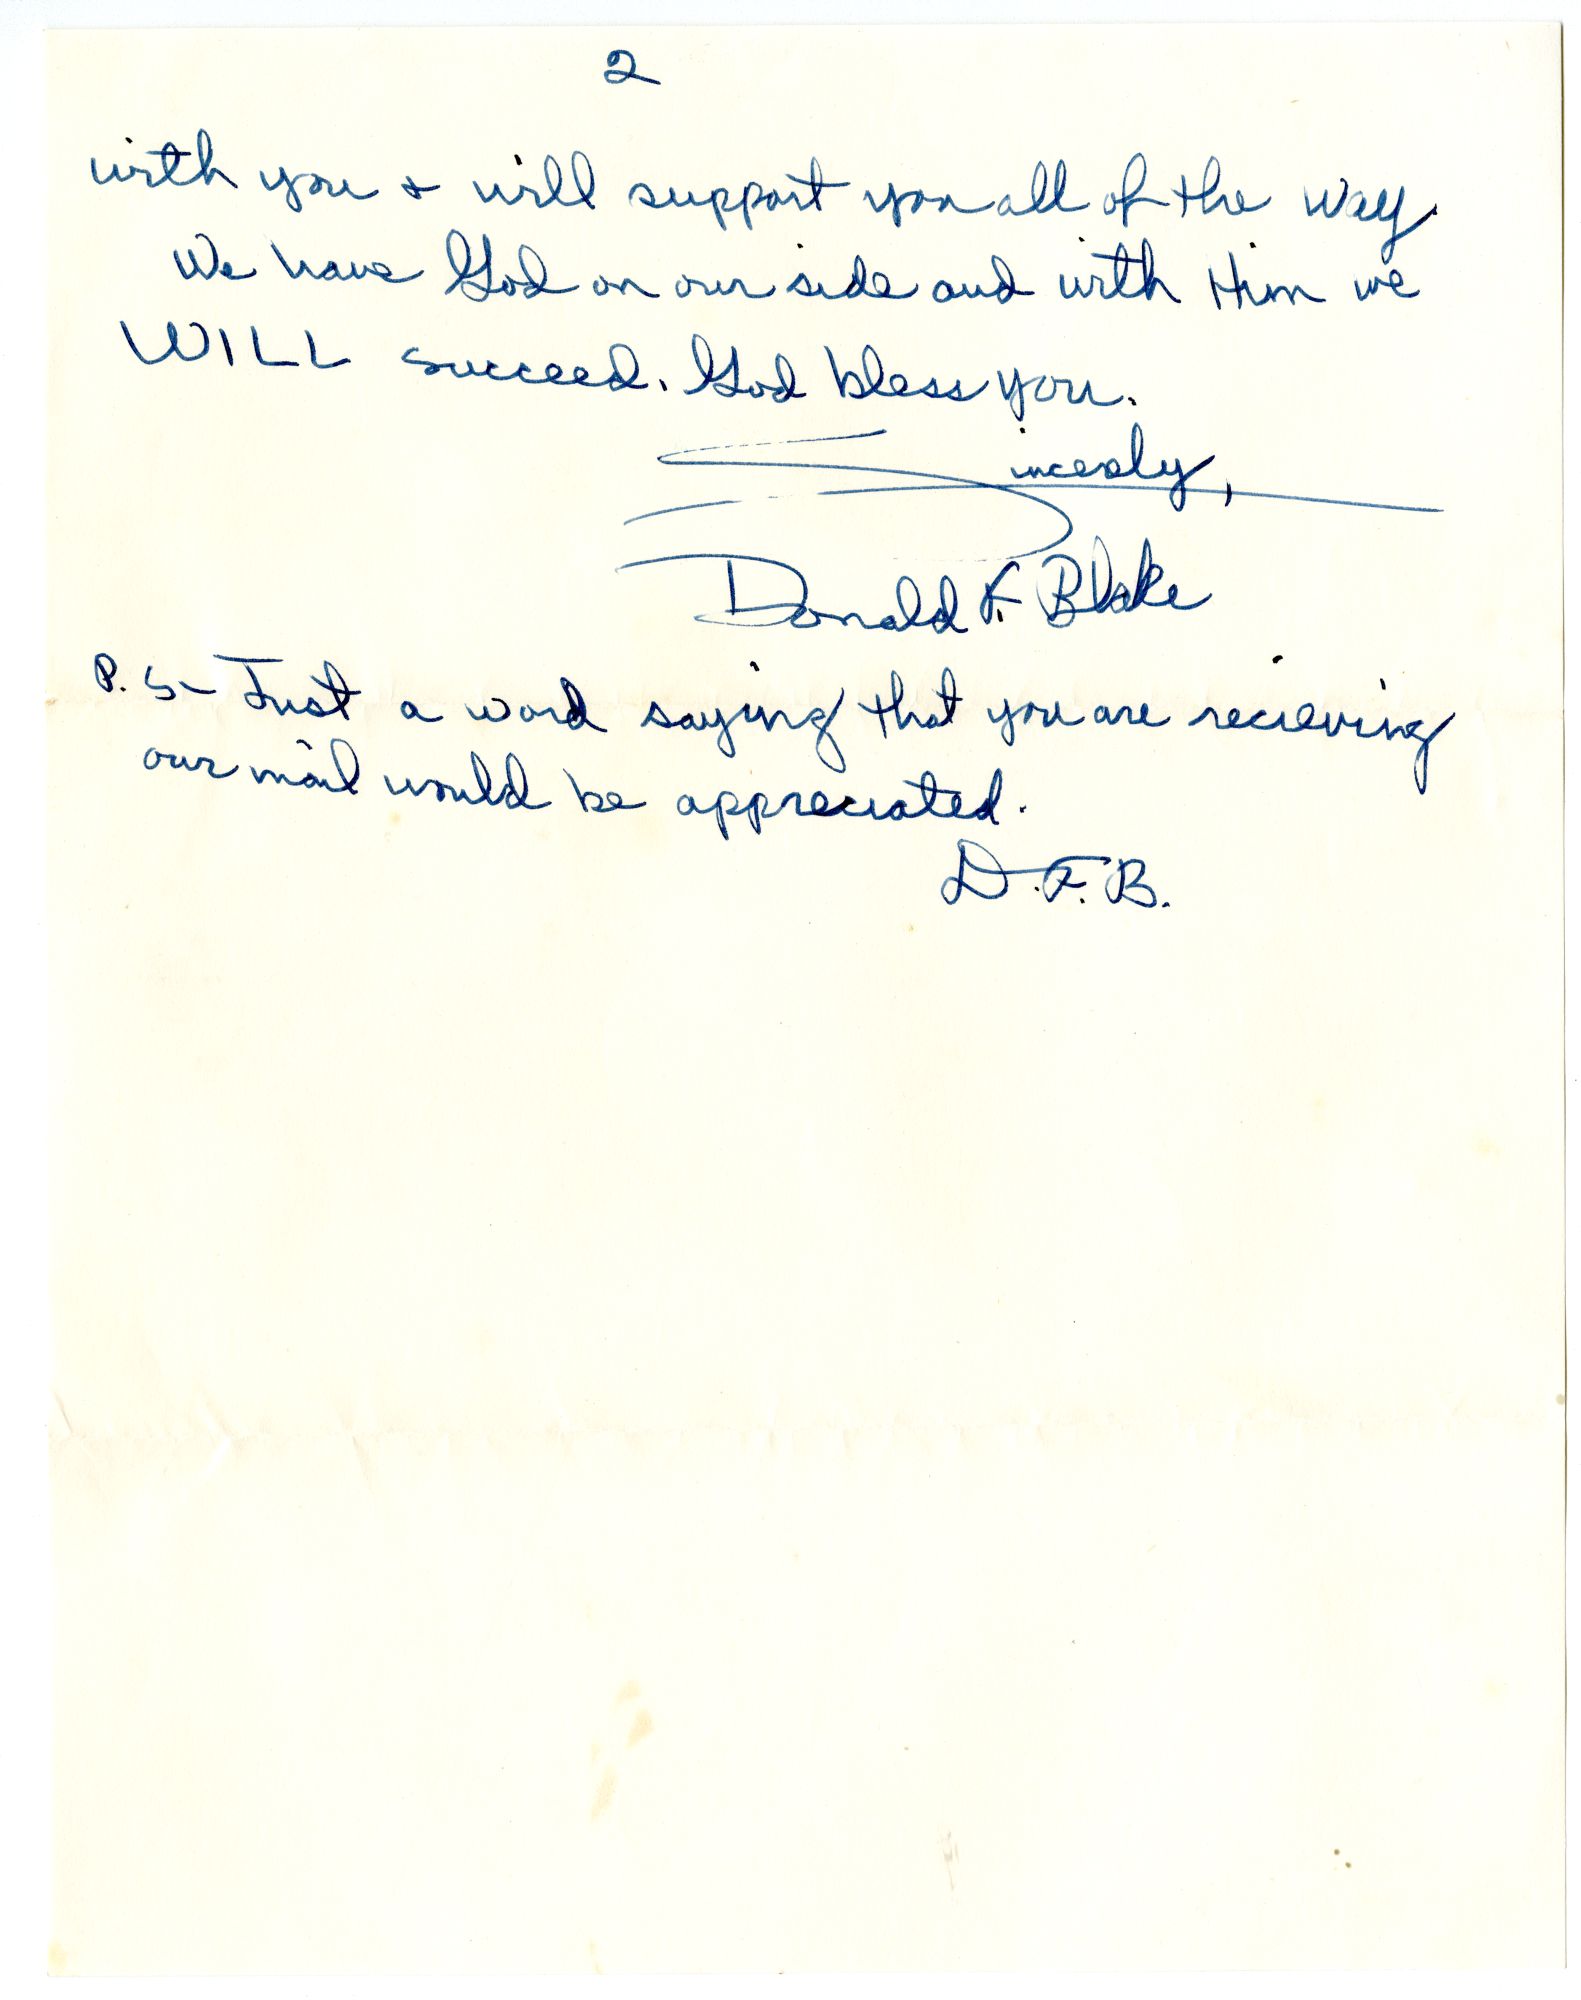 2
with you & will support you all of the way.
We have God on our side and with Him we
WILL succeed. God bless you.
Sincerly,
Donald F. Blake
P. S- Just a word saying that you are recieving
our mail would be appreciated.
D.F.B.